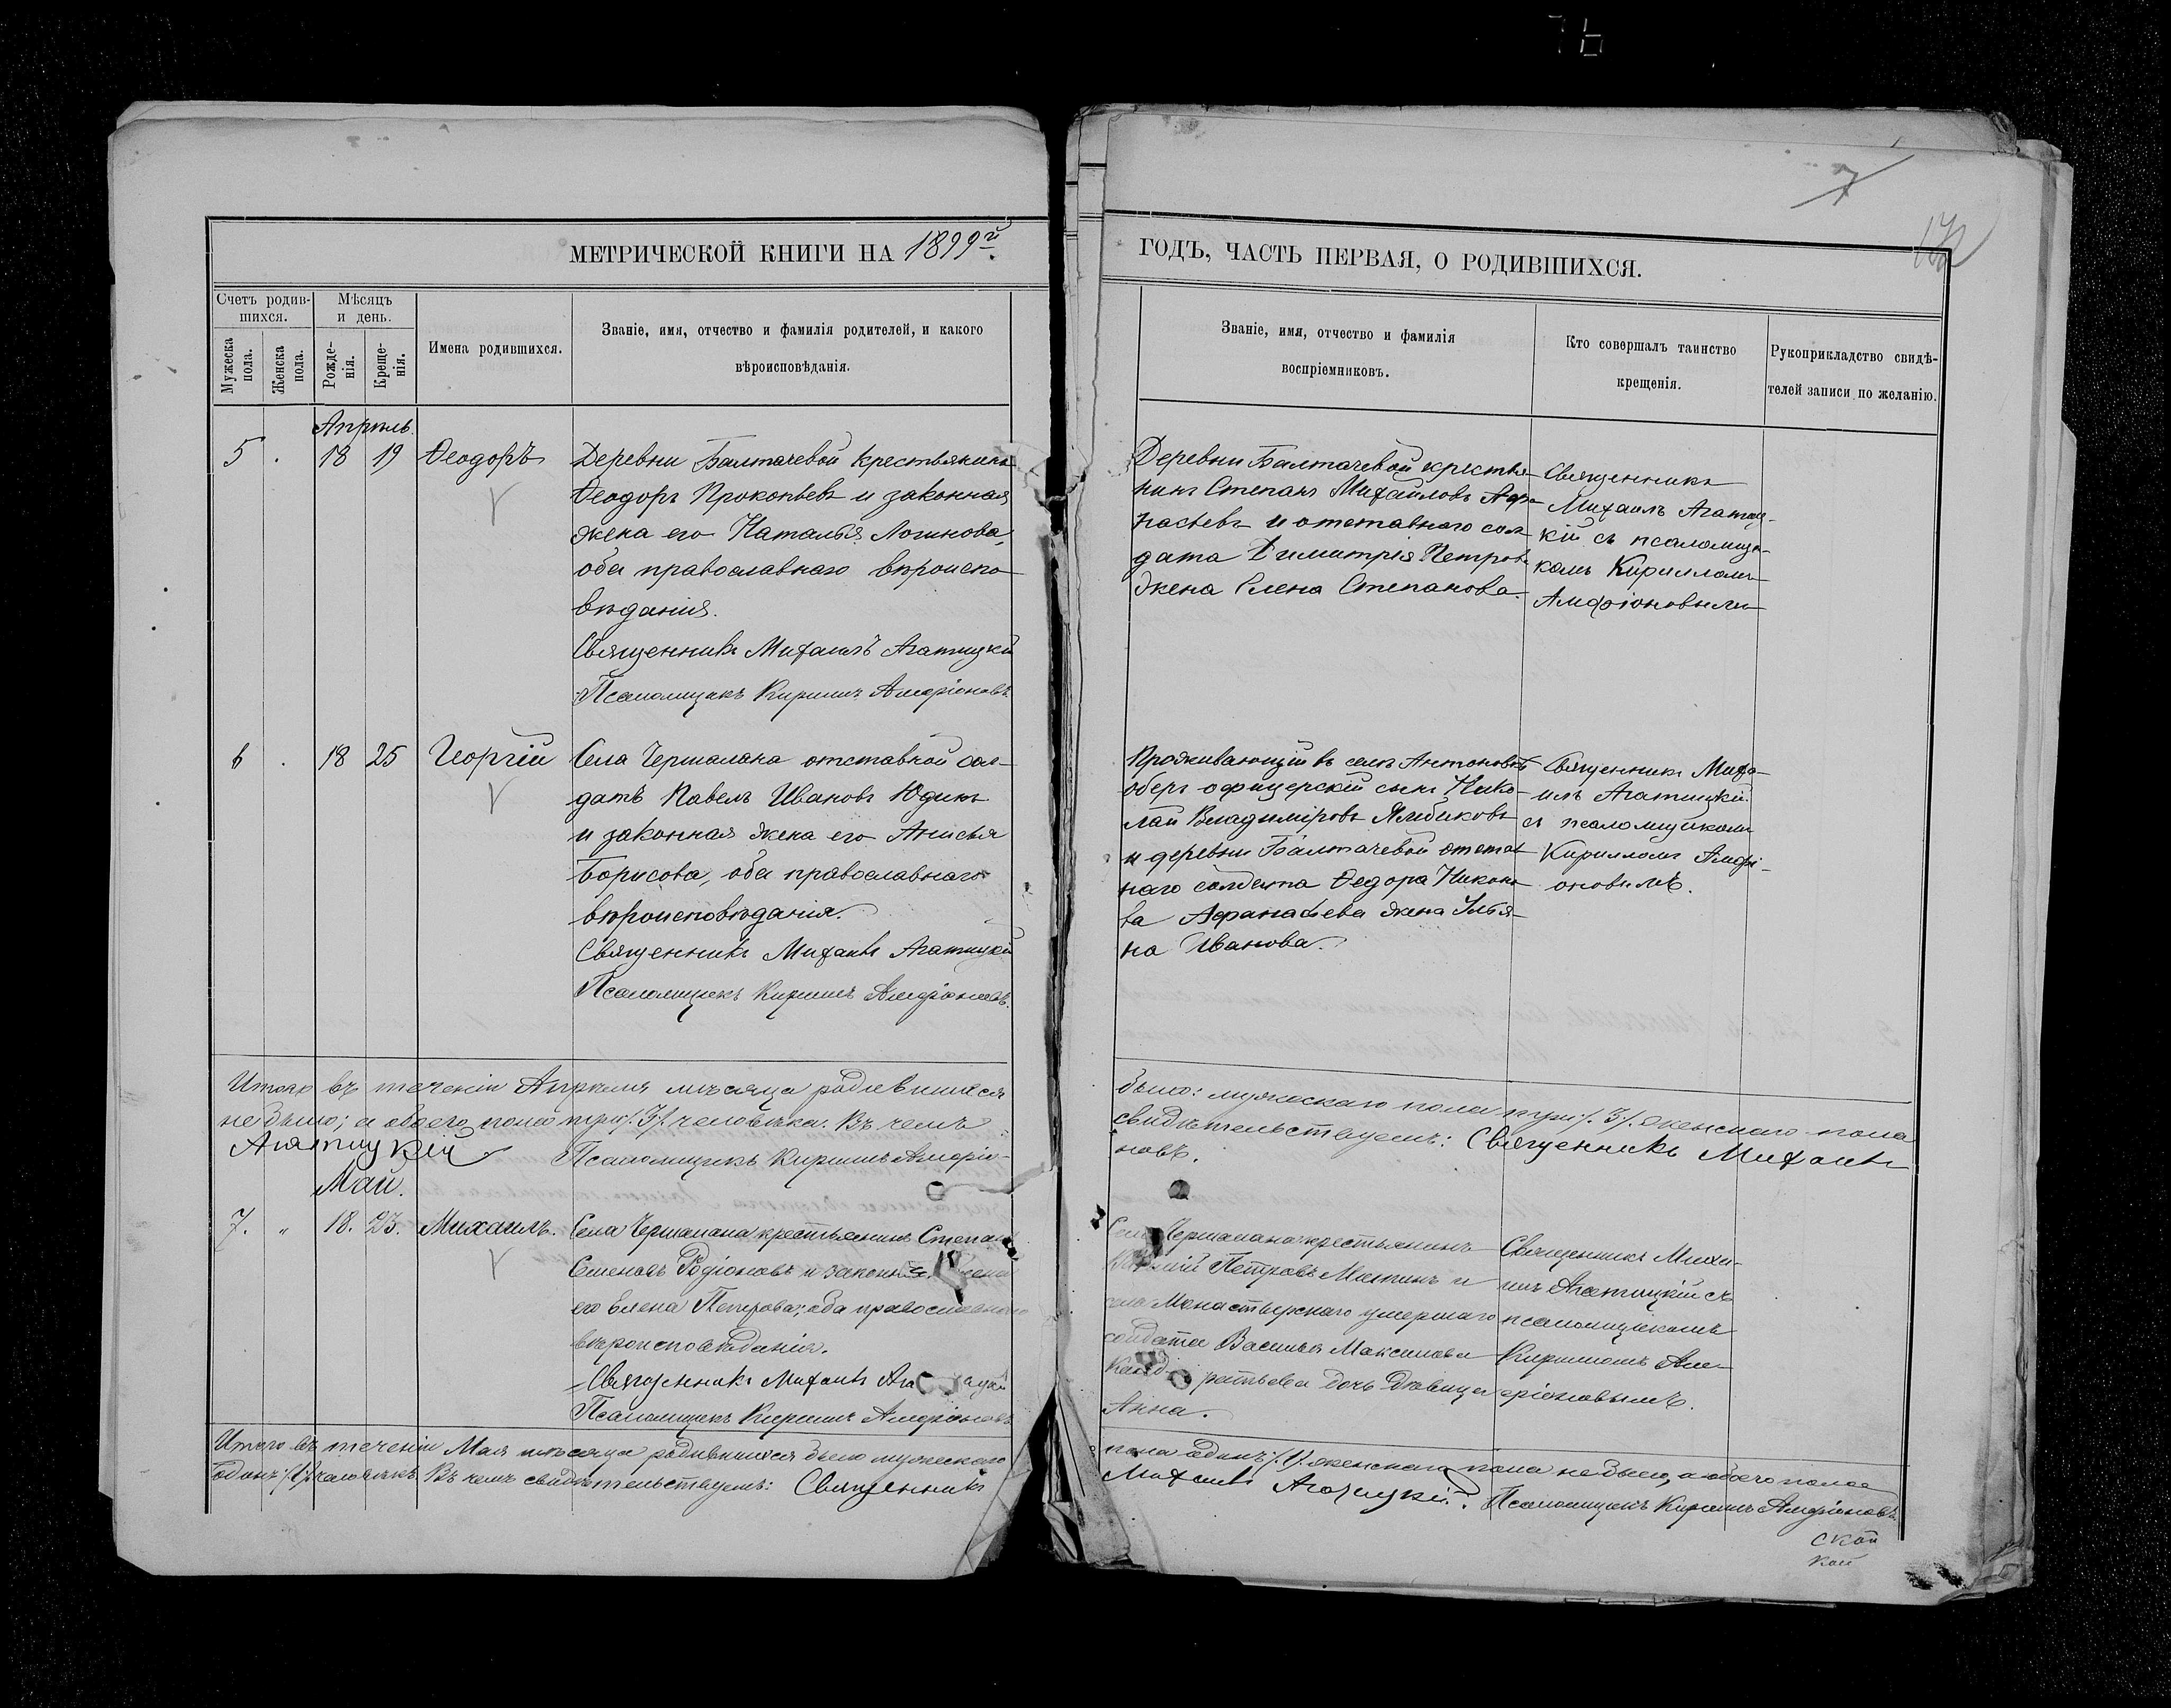 7
МЕТРИЧЕСКОЙ КНИГИ НА 1899й.
ГОДЪ, ЧАСТЬ ПЕРВАЯ, О РОДИВШИХСЯ.
Счетъ родив-
шихся.
Мужеска
пола.
Женска
пола.
Мѣсяцъ
и день.
Рожде-
нія.
Креще-
нія.
Имена родившихся.
Званіе, имя, отчество и фамилія родителей, и какого
вѣроисповѣданія.
Званіе, имя, отчество и фамилія
воспріемниковъ.
Кто совершалъ таинство
крещенія.
Рукоприкладство свидѣ-
телей записи по желанію.
Апрѣль.
5 . 18 19 Ѳеодоръ
Деревни Балтачевой крестьянинъ
Ѳеодоръ Прокопьевъ и законная
жена его Наталья Логинова,
оба православнаго вѣроиспо-
вѣданія.
Священникъ Михаилъ Агатицкій
Псаломщикъ Кириллъ Амфіоновъ.
Деревни Балтачевой крестья-
нинъ Степанъ Михайловъ Афа-
насьевъ и отставного сол-
дата Димитрія Петрова
жена Елена Степанова.
Священникъ
Михаилъ Агатиц-
кій съ псаломщи-
комъ Кирилломъ
Амфіоновымъ
6 . 18 25 Георгій
Села Чермалана отставной сол-
датъ Павелъ Ивановъ Юдинъ
и законная жена его Анисья
Борисова, оба православнаго
вѣроисповѣданія.
Священникъ Михаилъ Агатицкій
Псаломщикъ Кириллъ Амфіоновъ.
Проживающій въ селѣ Антоновкѣ
оберъ офицерскій сынъ Нико-
лай Владиміровъ Ялибиковъ
и деревни Балтачевой отстав-
наго солдата Ѳедора Никоно-
ва Афанасьева жена Улья-
на Иванова.
Священникъ Миха-
илъ Агатицкій
съ псаломщикомъ
Кирилломъ Амфі-
оновымъ.
Итого въ теченіи Апрѣля мѣсяца родившихся
было: мужескаго пола три /.3/. женскаго пола
не было; а обоего пола три /.3/. человѣка. Въ чемъ
свидѣтельствуемъ: Священникъ Михаилъ
Агатицкій Псаломщикъ Кириллъ Амфіо-
новъ.
Май.
7. „ 18. 23. Михаилъ.
Села Чермалана крестьянинъ Степанъ
Семеновъ Родіоновъ и законная жена
его Елена Петрова; оба православнаго
вѣроисповѣданія.
Священникъ Михаилъ
Псаломщикъ Кириллъ Амфіоновъ
Села Чермалана крестьянинъ
Петровъ Милтинъ и
села Монастырскаго умершаго
солдата Василья Максимова
Кандратьева дочь дѣвица
Анна.
Священникъ Миха-
илъ Агатицкій съ
псаломщикомъ
Кирилломъ Ам-
фіоновымъ.
Итого въ теченіи Мая мѣсяца родившихся было мужескаго
пола одинъ /.1/. женскаго пола не было, а обоего пола
одинъ /.1/. человѣкъ. Въ чемъ свидѣтельствуемъ: Священникъ
Михаилъ Агатицкій. Псаломщикъ Кириллъ Амфіоновъ.
ской
кой